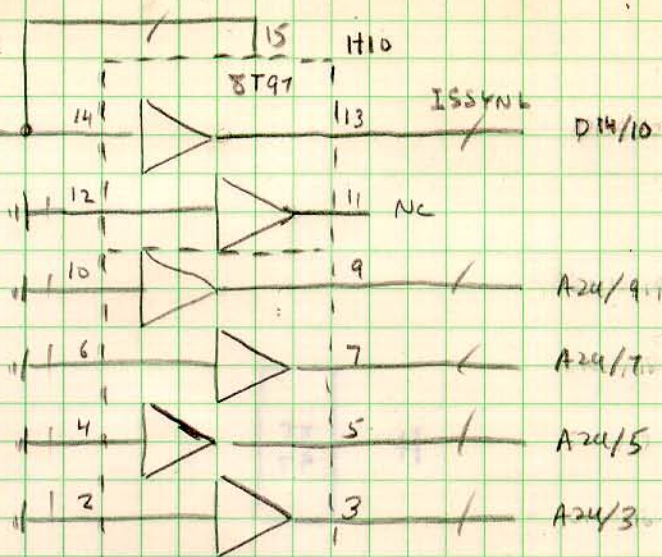 15 H10
8T97
ISSYNL
14 13 D14/10
12 11 NC
10 9 A24/9
6 7 A24/7
4 5 A24/5
2 3 A24/3